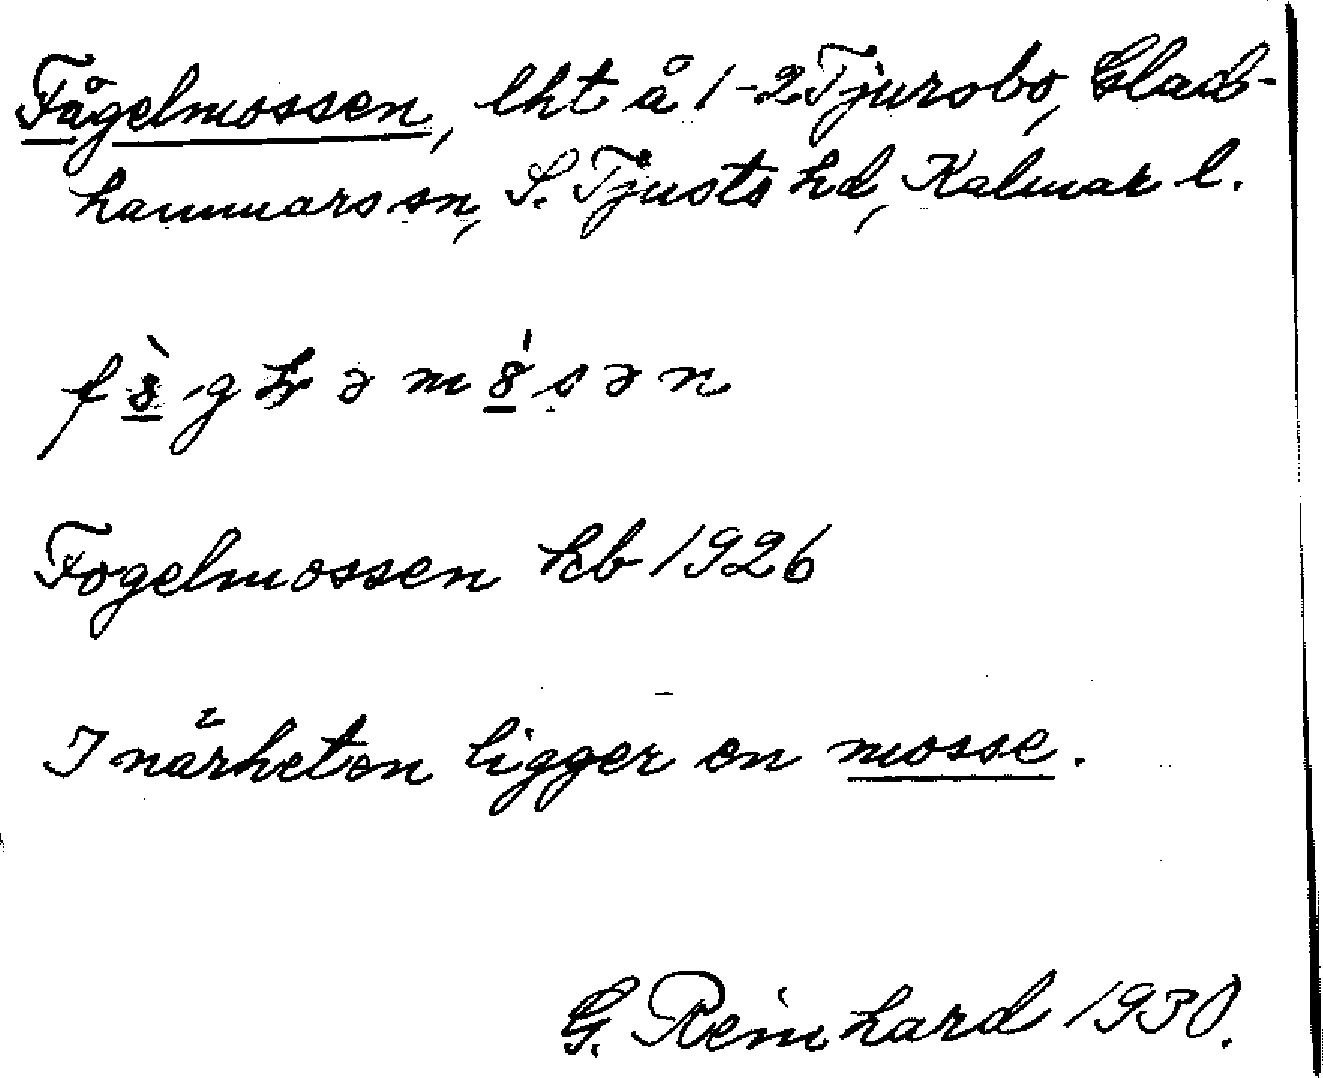 Fågelmossen, lht å 1-2 Tjursbo, Glad-
hammars sn, S. Tjusts hd, Kalmar l.
Fogelmossen hb 1926
I närheten ligger en mosse.
G. Reinhard 1930.